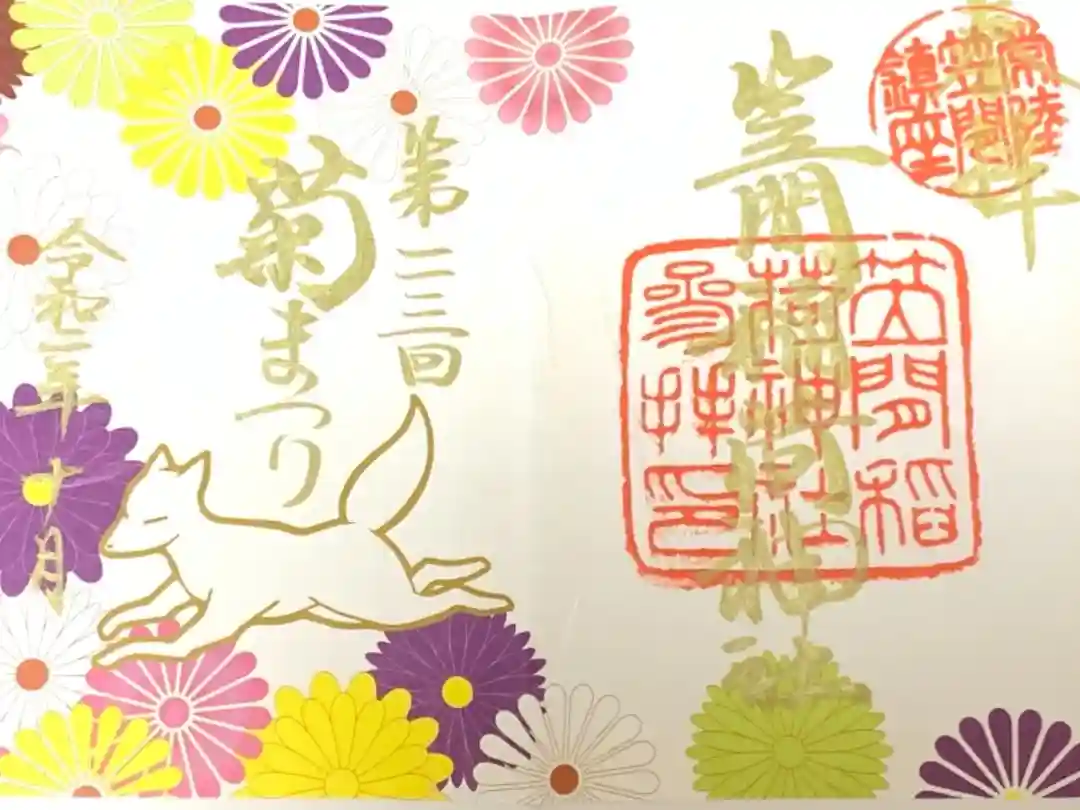 奉拝
常陸
笠間
鎮座
笠間稲荷神社
笠間稲
荷神社
参拝印
第一一三回
菊まつり
令和二年十月